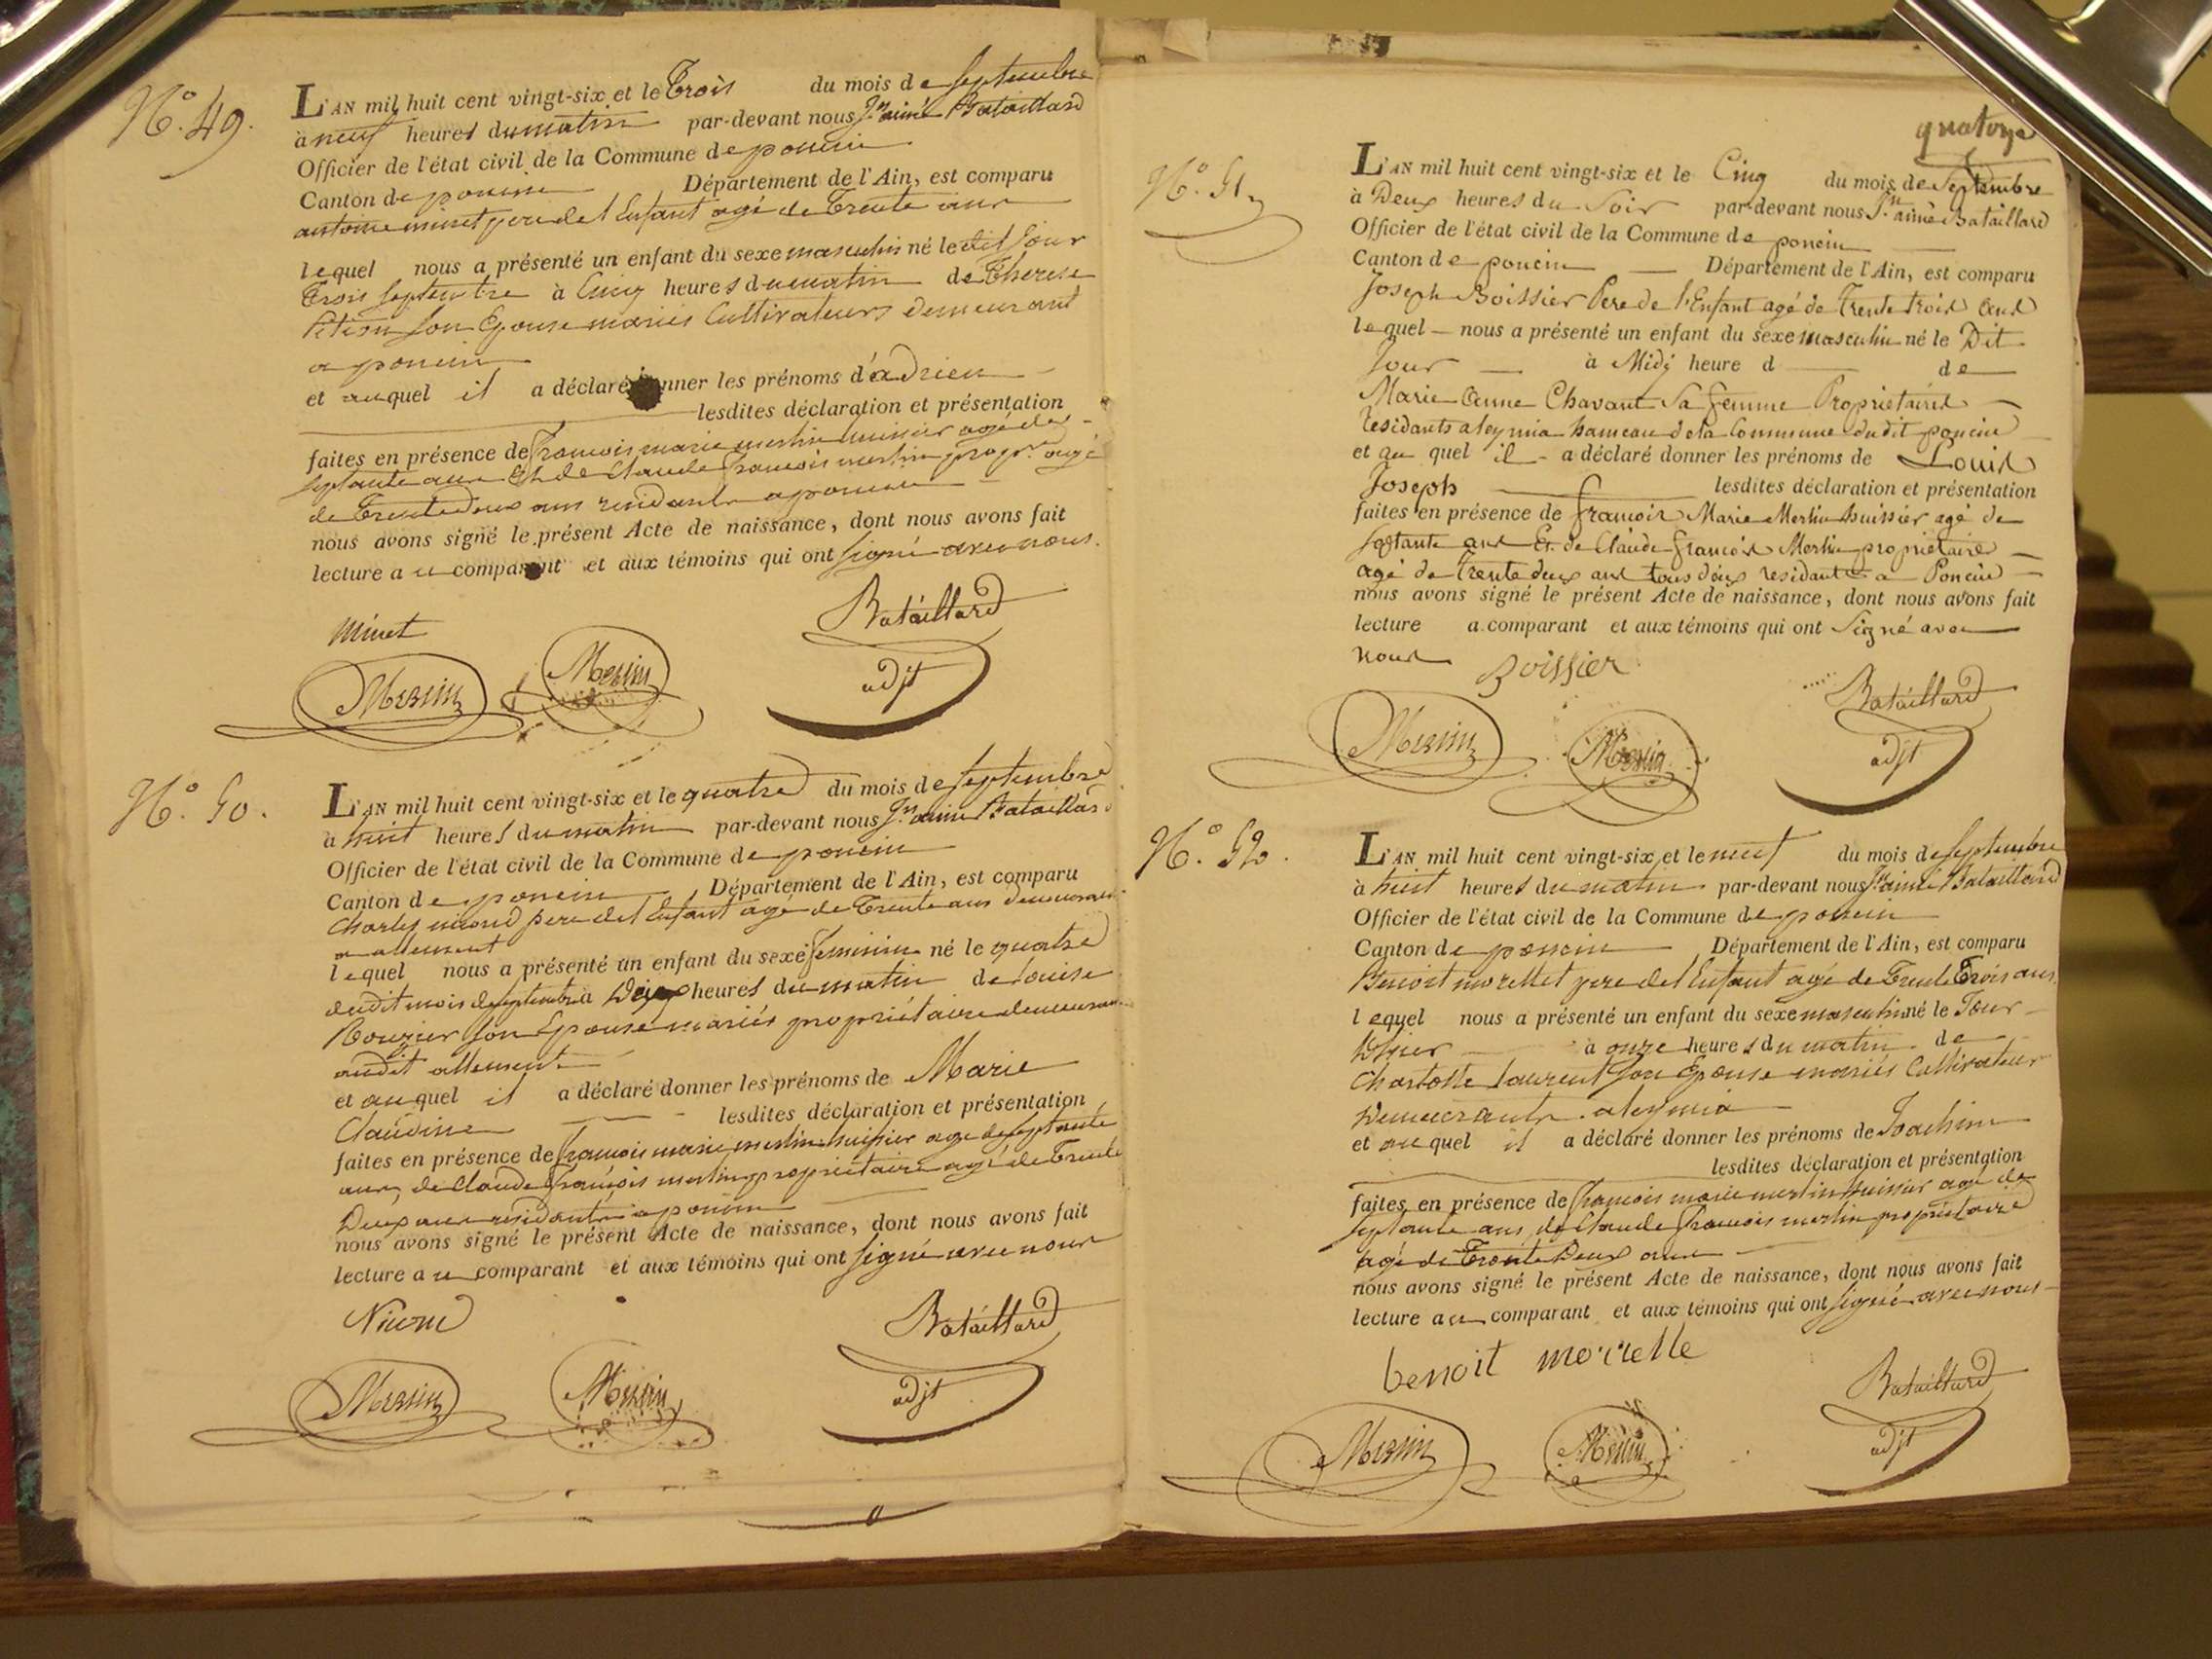 N.° 49.
L'AN mil huit cent vingt-six et le Trois du mois de septembre
à neuf heures du matin par-devant nous Jn aimé Bataillard
Officier de l'état civil de la Commune de poncin
Canton de poncin Département de l'Ain, est comparu
antoine minet pere de l'Enfant agé de Trente ans
lequel nous a présenté un enfant du sexe masculin né le dit Jour
Trois septembre à Cinq heures du matin de Therese
son Epouse mariés Cultivateurs Demeurant
a poncin
et auquel il a déclaré donner les prénoms d'adrien
lesdites déclaration et présentation
faites en présence de francois marie merlin huissier agé de
septante ans Et de Claude francois merlin propre. agé
de Trente Deux ans residants a poncin
nous avons signé le présent Acte de naissance, dont nous avons fait
lecture au comparant et aux témoins qui ont signé avec nous.
Minet
Bataillard
Merlin
Merlin
adjt
N.° 50.
L'AN mil huit cent vingt-six et le quatre du mois de septembre
à huit heures du matin par-devant nous Jn aimé Bataillard
Officier de l'état civil de la Commune de poncin
Canton de poncin Département de l'Ain, est comparu
Charles nicond pere de l'Enfant agé de Trente ans Demeurant
a allement
lequel nous a présenté un enfant du sexe feminin né le quatre
dudit mois de septembre à Deux heures du matin de Louise
Bourier son Epouse mariés propriétaire demeurant
audit allement
et auquel il a déclaré donner les prénoms de Marie
Claudine lesdites déclaration et présentation
faites en présence de francois marie merlin huissier age de septante
ans, de Claude françois merlin propriétaire agé de Trente
Deux ans residants a poncin
nous avons signé le présent Acte de naissance, dont nous avons fait
lecture au comparant et aux témoins qui ont signé avec nous
Bataillard
Merlin
Merlin
adjt
quatorze
N.° 51
L'AN mil huit cent vingt-six et le Cinq du mois de Septembre
à Deux heures du Soir par-devant nous Jn. aimé Bataillard
Officier de l'état civil de la Commune de poncin
Canton de poncin Département de l'Ain, est comparu
Joseph Boissier Pere de l'Enfant agé de Trente trois ans
lequel nous a présenté un enfant du sexe masculin né le Dit
Jour à Midy heure d de
Marie Anne Chavant Sa femme Proprietaires
residants a leymia hameau de la Commune dudit poncin
et au quel il a déclaré donner les prénoms de Louis
Joseph lesdites déclaration et présentation
faites en présence de francois Marie Merlin huissier agé de
Septante ans Et de Claude francois Merlin proprietaire
agé de trente deux ans tous deux residants a Poncin
nous avons signé le présent Acte de naissance, dont nous avons fait
lecture a comparant et aux témoins qui ont Signé avec
nous
Boissier
Bataillard
Merlin
Merlin
adjt
N.° 52.
L'AN mil huit cent vingt-six et le neuf du mois de septembre
à huit heures du matin par-devant nous Jn aimé Bataillard
Officier de l'état civil de la Commune de poncin
Canton de poncin Département de l'Ain, est comparu
Benoit morettet pere de l'Enfant agé de Trente Trois ans
lequel nous a présenté un enfant du sexe masculin né le Jour
D'hier à onze heures du matin de
Charlotte Laurent son Epouse mariés Cultivateur
Demeurants a leymia
et auquel il a déclaré donner les prénoms de Joachim
lesdites déclaration et présentation
faites en présence de francois marie merlin huissier agé de
septante ans, de Claude francois merlin propriétaire
agé de Trente Deux ans
nous avons signé le présent Acte de naissance, dont nous avons fait
lecture au comparant et aux témoins qui ont signé avec nous
benoit
Bataillard
Merlin
Merlin
adjt